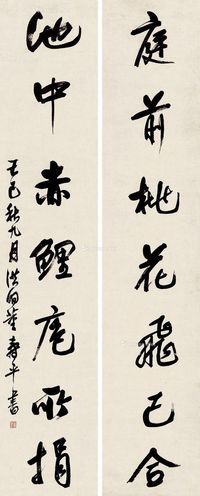 庭前桃花飛已合
池中赤鯉庖所捐
秋九月洪洞董壽平書